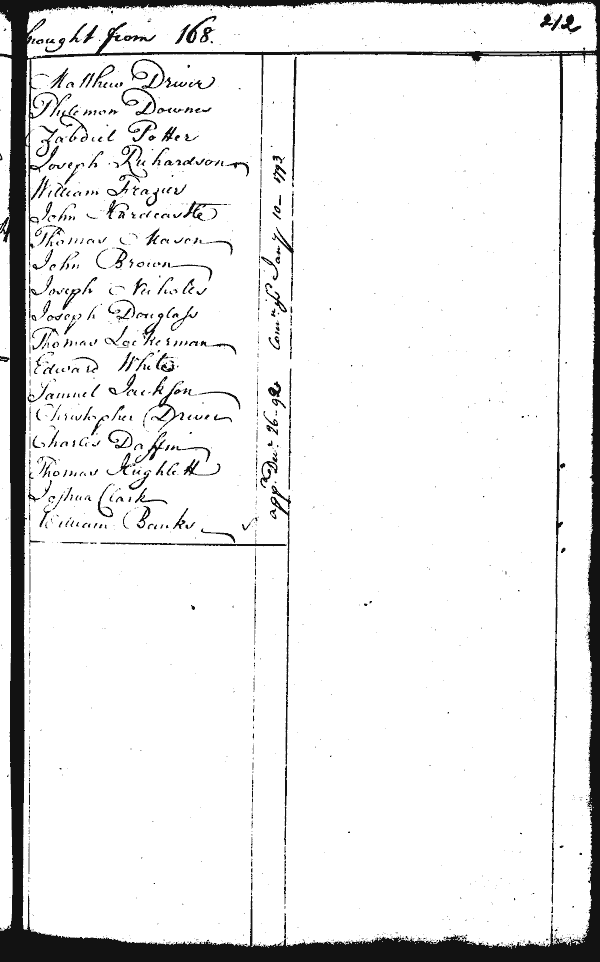 brought from 168.
212
Matthew Driver
Philemon Downes
Zabdiel Potter
Joseph Richardson
William Frazier
John Hardcastle
Thomas Mason
John Brown
Joseph Nicholes
Joseph Douglass
Thomas Lockerman
Edward White
Samuel Jackson
Christopher Driver
Charles Daffin
Thomas Hughlett
Joshua Clark
William Banks
appd Decr 26-92 Comn iss Jany 10-1793